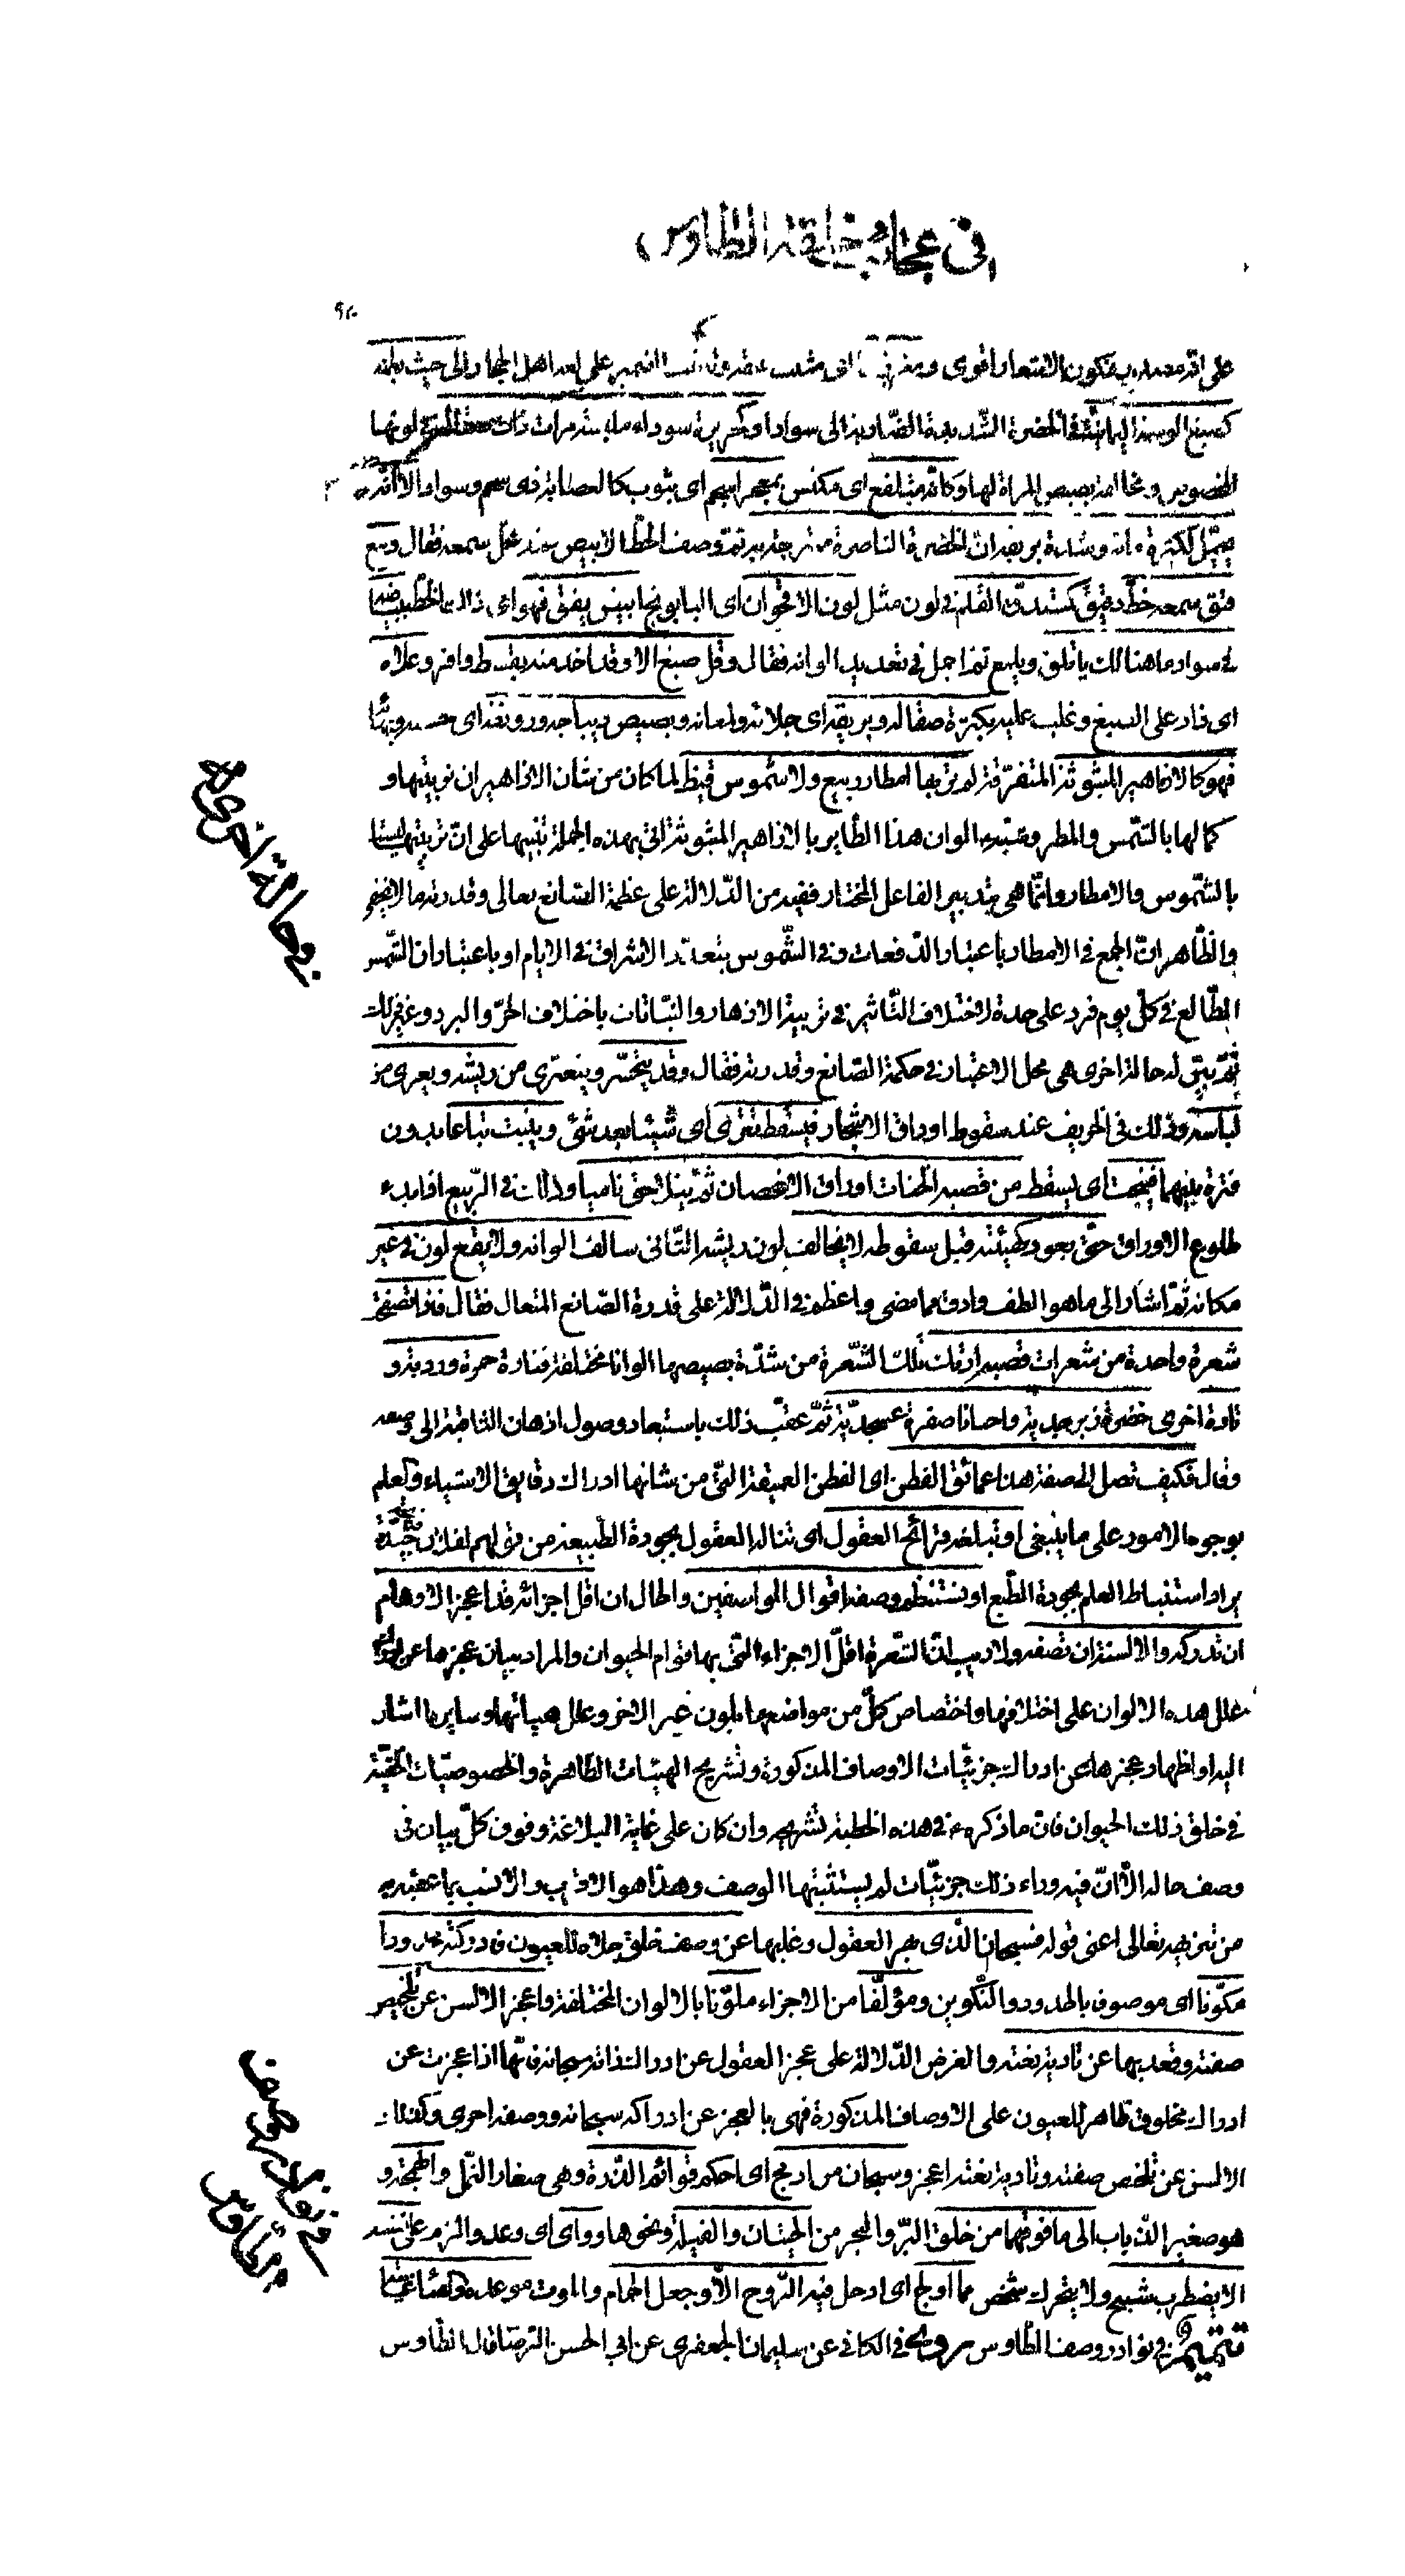 في عجائب خلقة الطاوس
٩٢٠
على انّه مصدر فتكون الاستعار اقوى ومغرزها الى حيث بطنه
كصبغ الوسمة اليمانيّة في الخضرة الشّديدة الضّاربة الى سواد او كحريرة سوداء ملبسة مرات ذات صقال لونها
المخصوص ومخالفة بصيص المراة لها وكانّه متلفع اى مكتس بمعجر اسحم اى بثوب كالعصابة ذى سحم وسواد الّا انّه
يخيّل لكثرة مائه وشدة بريقه ان الخضرة الناضرة ممتزجة به ثمّ وصف الخطّ الابيض عند محل سمعه فقال ومع
فتق سمعه خطّ دقيق كمستدقّ القلم في لون مثل لون الاقحوان اى البابونج ابيض يقق فهو اى ذلك الخطّ ببياضه
في سواد ما هنالك ياتلق ويلمع ثمّ اجمل في تعديد الوانه فقال وقلّ صبغ الا وقد اخذ منه بقسط وافر وعلاه
اى زاد على الصبغ وغلب عليه بكثرة صقاله وبريقه اى جلائه ولمعانه وبصيص ديباجه ورونقه اى حسنه وبهائه
فهو كالازاهير المبثوثة المتفرّقة لم تربها امطار ربيع ولا شموس قيظ لما كان من شان الازاهير ان تربيتها و
كمالها بالشّمس والمطر وشبّه الوان هذا الطاير بالازاهير المبثوثة اتى بهذه الجملة تنبيها على انّ تربيتها ليست
بالشّموس والامطار وانّما هي بتدبير الفاعل المختار ففيه من الدّلالة على عظمة الصّانع تعالى وقدرته ما لا يخفى
والظّاهر انّ الجمع في الامطار باعتبار الدّفعات وفي الشّموس بتعدّد الاشراق في الايام او باعتبار ان الشّمس
الطّالع في كلّ يوم فرد على حدة لاختلاف التّاثير في تربية الازهار والنّباتات باختلاف الحرّ والبرد وغير ذلك
ثمّ بيّن له حالة اخرى هي محل الاعتبار في حكمة الصّانع وقدرته فقال وقد يتحسّر ويتعرّى من ريشه ويعرى من
لباسه وذلك في الخريف عند سقوط اوراق الاشجار فيسقط تترى اى شيئا بعد شئ وينبت تباعا بدون
فترة بينهما فينحت اى يسقط من قصبه انحتات اوراق الاغصان ثمّ يتلاحق ناميا وذلك في الرّبيع اذا بدء
طلوع الاوراق حتّى يعود كهيئته قبل سقوطه لا يخالف لون ريشه الثّانى سالف الوانه ولا يقع لون في غير
مكانه ثمّ اشار الى ما هو الطف وادق مما مضى واعظم في الدّلالة على قدرة الصّانع المتعال فقال فاذا تصفحت
شعرة واحدة من شعرات قصبه ارتك تلك الشّعرة من شدّة بصيصها الوانا مختلفة فتارة حمرة ورديّة و
تارة اخرى خضرة زبرجديّة واحيانا صفرة عسجديّة ثمّ عقّب ذلك باستبعاد وصول اذهان الثاقبة الى وصفه
وقال فكيف تصل الى صفة هذا عمائق الفطن اى الفطن العميقة التّى من شانها ادراك دقايق الاشياء والعلم
بوجوه الامور على ما ينبغى او تبلغه قرائح العقول اى تناله العقول بجودة الطّبيعة من قولهم لفلان قريحة جيّدة
يراد استنباط العلم بجودة الطّبع او تستنظم وصفه اقوال الواصفين والحال ان اقل اجزائه قد اعجز الاوهام
ان تدركه والالسنة ان تصفه ولا ريب انّ الشّعرة اقلّ الاجزاء التّى بها قوام الحيوان والمراد بيان عجزها عن ادراك
علل هذه الالوان على اختلافها واختصاص كلّ من مواضعها بلون غير الاخر وعلل هيأتها وساير ما اشار
اليه او اظهار عجزها عن ادراك جزئيّات الاوصاف المذكورة وتشريح الهيئات الظّاهرة والخصوصيّات الخفيّة
في خلق ذلك الحيوان فانّ ما ذكره في هذه الخطبة الشّريفة وان كان على غاية البلاغة وفوق كلّ بيان في
وصف حاله الّا انّ فيه وراء ذلك جزئيّات لم يستثبتها الوصف وهذا هو الاقرب والانسب بما عقبه به
من تنزيهه تعالى اعنى قوله فسبحان الّذى بهر العقول وغلبها عن وصف خلق جلاه للعيون فادركته محدودا
مكوّنا اى موصوف بالحدود والتّكوين ومؤلّفا من الاجزاء ملوّنا بالالوان المختلفة واعجز الالسن عن تلخيص
صفته وقعد بها عن تادية نعته والغرض الدّلالة على عجز العقول عن ادراك ذاته سبحانه فانّها اذا عجزت عن
ادراك مخلوق ظاهر للعيون على الاوصاف المذكورة فهى بالعجز عن ادراكه سبحانه ووصفه احرى وكذلك
الالسن عن تلخص صفته وتادية نعته اعجز وسبحان من ادمج اى احكم قوائم الذّرة وهى صغار النّمل والهمجة و
هو صغير الذّباب الى ما فوقهما من خلق البرّ والبحر من الحيتان والفيلة ونحوها وواى اى وعد والزم على نفسه
الا يضطرب شبح ولا يتحرك شخص مما اولج اى ادخل فيه الرّوح الّا وجعل الحمام والموت موعده والفناء غايته
تتميم في نوادر وصف الطّاوس روى في الكافى عن سليمان الجعفرى عن ابى الحسن الرّضا قال الطّاوس
في حالة اخرى له
في نوادر وصف
الطّاوس